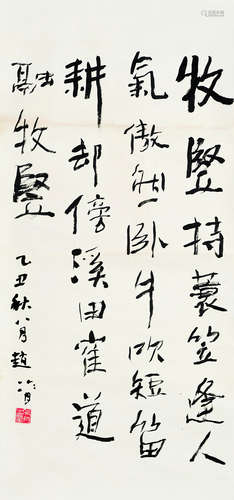 牧豎持蓑笠逢人
氣傲然卧牛吹短笛
耕却傍溪田崔道
融牧豎
乙丑秋八月趙冷月